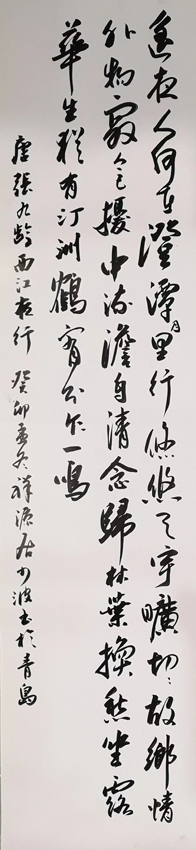 遥夜人何在澄潭月里行悠悠天宇曠切切故鄉情
外物寂無擾中流澹自清念歸林葉換愁坐露
華生猶有汀洲鶴宵分乍一鳴
唐張九齡西江夜行 癸卯孟冬祥源居少波書於青島